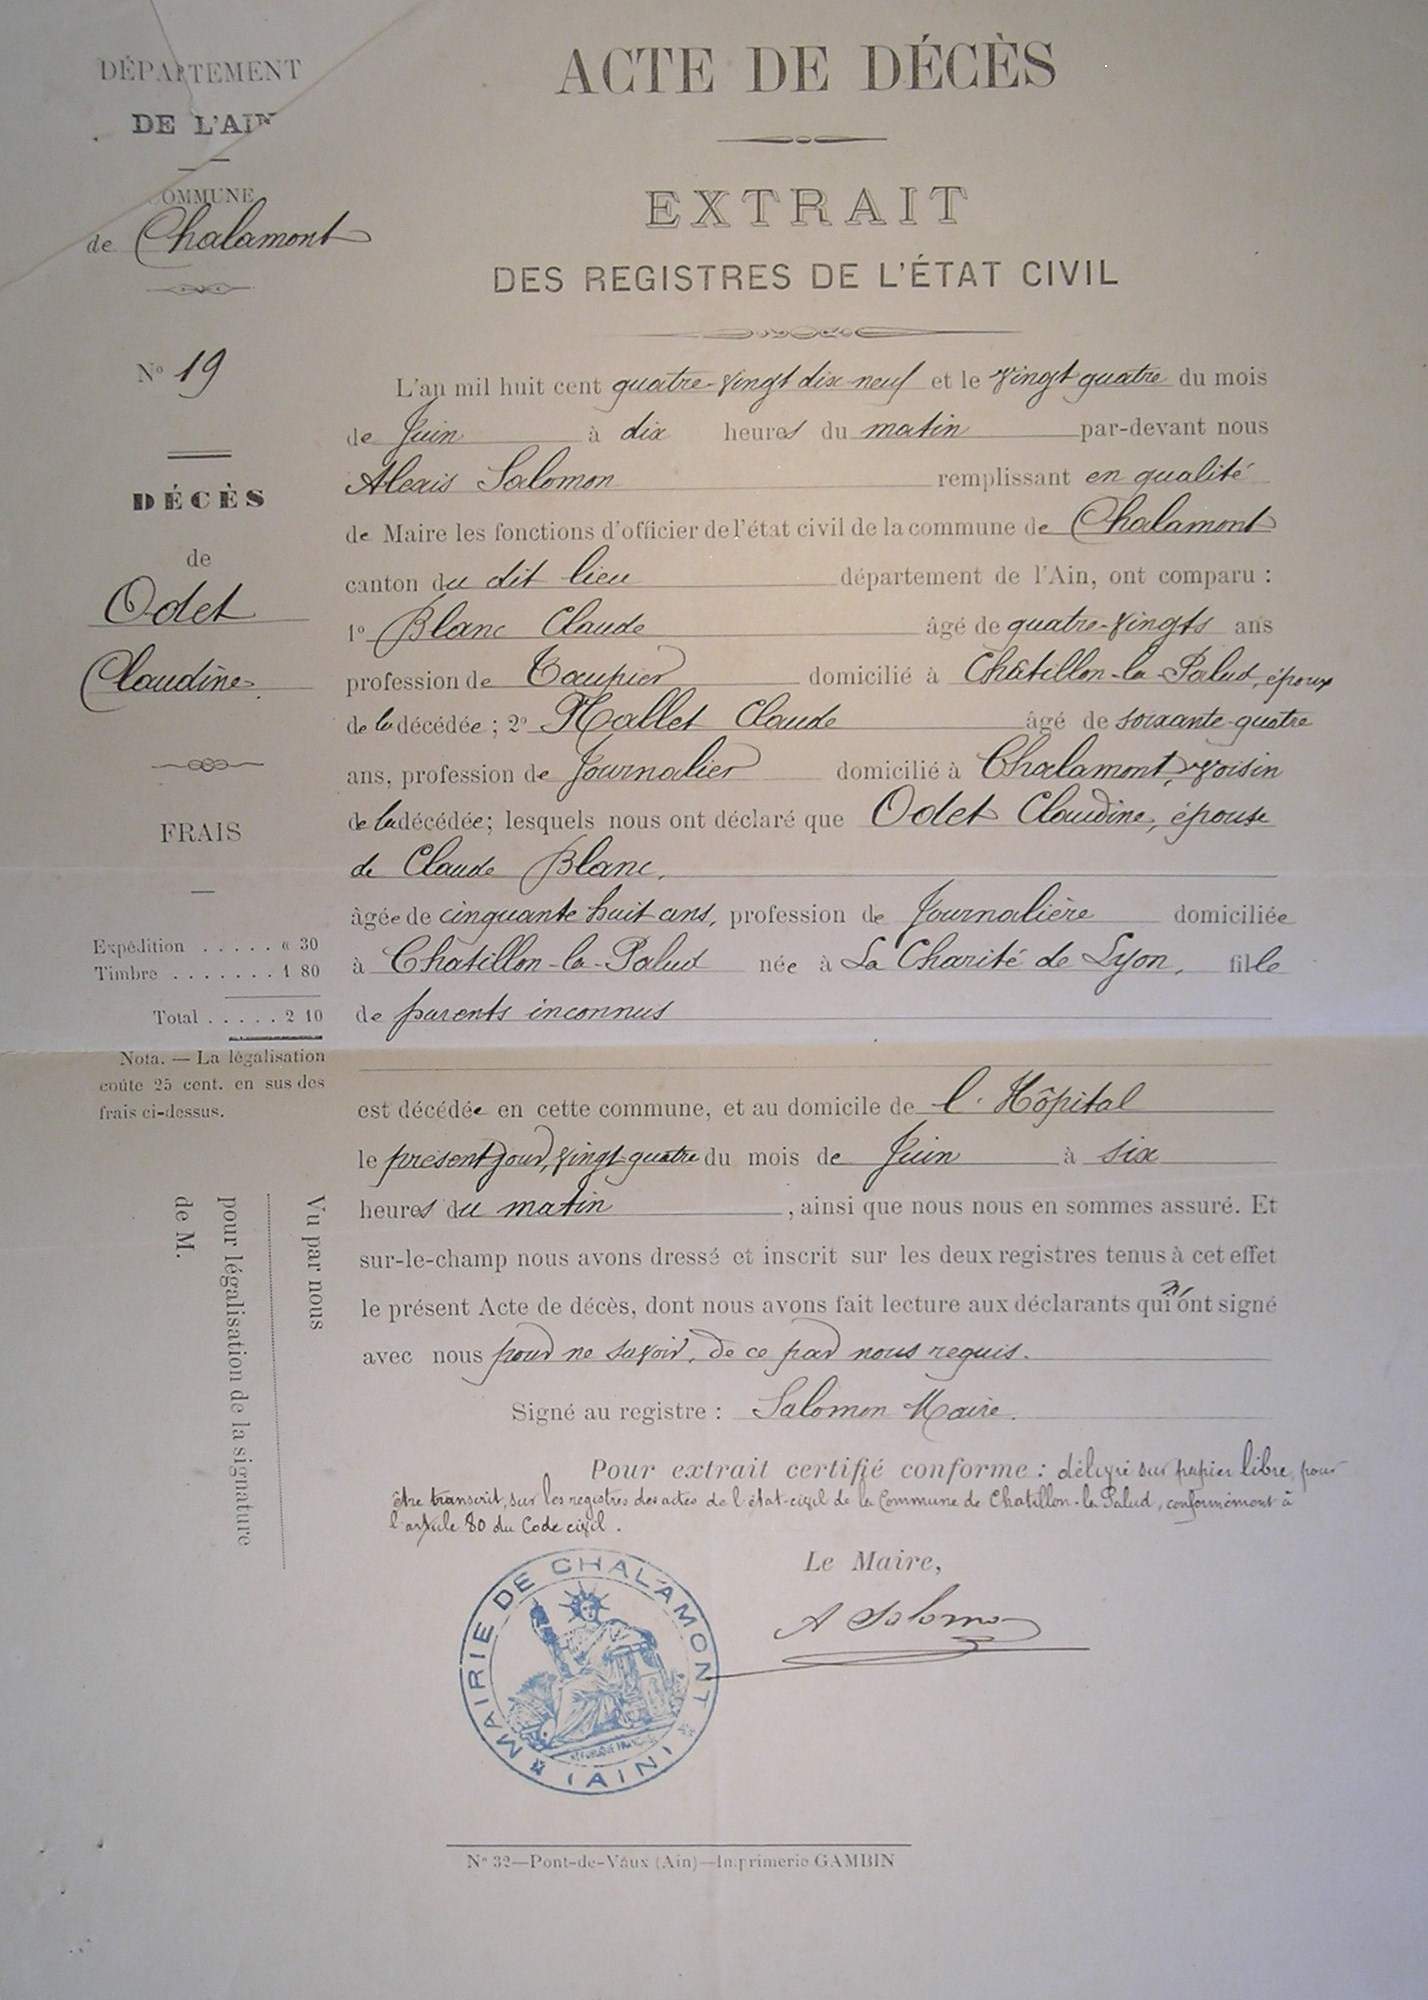 DÉPARTEMENT
DE L'AIN
COMMUNE
de Chalamont
N° 19
DÉCÈS
de
Odet
Claudine
FRAIS
Expédition . . . . . « 30
Timbre . . . . . . . 1 80
Total . . . . . 2 10
Nota. — La légalisation
coûte 25 cent. en sus des
frais ci-dessus.
Vu par nous
pour légalisation de la signature
de M.
ACTE DE DÉCÈS
EXTRAIT
DES REGISTRES DE L'ÉTAT CIVIL
L'an mil huit cent quatre-vingt dix neuf et le vingt quatre du mois
de Juin à dix heures du matin par-devant nous
Alexis Salomon remplissant en qualité
de Maire les fonctions d'officier de l'état civil de la commune de Chalamont
canton du dit lieu département de l'Ain, ont comparu :
1° Blanc Claude âgé de quatre-vingts ans
profession de Taupier domicilié à Châtillon-la-Palud, époux
de la décédée ; 2° Mallet Claude âgé de soixante-quatre
ans, profession de Journalier domicilié à Chalamont, voisin
de la décédée ; lesquels nous ont déclaré que Odet Claudine, épouse
de Claude Blanc,
âgée de cinquante huit ans, profession de Journalière domiciliée
à Châtillon-la-Palud née à La Charité de Lyon, fille
de parents inconnus
est décédée en cette commune, et au domicile de l'Hôpital
le présent jour, vingt-quatre du mois de Juin à six
heures du matin , ainsi que nous nous en sommes assuré. Et
sur-le-champ nous avons dressé et inscrit sur les deux registres tenus à cet effet
le présent Acte de décès, dont nous avons fait lecture aux déclarants qui n'ont signé
avec nous pour ne savoir, de ce par nous requis.
Signé au registre : Salomon Maire.
Pour extrait certifié conforme : délivré sur papier libre, pour
être transcrit, sur les registres des actes de l'état-civil de la Commune de Chatillon-la-Palud, conformément à
l'article 80 du Code civil.
Le Maire,
A Salomon
MAIRIE DE CHALAMONT
(AIN)
RÉPUBLIQUE FRANÇAISE
N° 32—Pont-de-Vaux (Ain)—Imprimerie GAMBIN